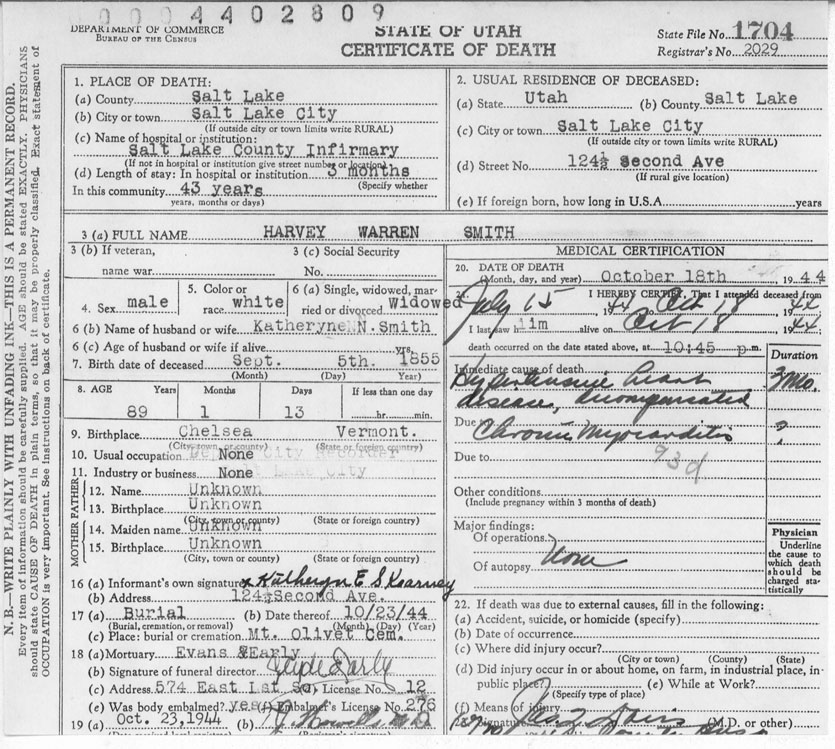 0004402809
DEPARTMENT OF COMMERCE
BUREAU OF THE CENSUS
STATE OF UTAH
CERTIFICATE OF DEATH
State File No. 1704
Registrar's No. 2029
N. B.—WRITE PLAINLY WITH UNFADING INK—THIS IS A PERMANENT RECORD.
Every item of information should be carefully supplied. AGE should be stated EXACTLY. PHYSICIANS
should state CAUSE OF DEATH in plain terms, so that it may be properly classified. Exact statement of
OCCUPATION is very important. See instructions on back of certificate.
1. PLACE OF DEATH:
(a) County Salt Lake
(b) City or town Salt Lake City
(If outside city or town limits write RURAL)
(c) Name of hospital or institution:
Salt Lake County Infirmary
(If not in hospital or institution give street number or location)
(d) Length of stay: In hospital or institution 3 months
(Specify whether
In this community 43 years
years, months or days)
2. USUAL RESIDENCE OF DECEASED:
(a) State Utah (b) County Salt Lake
(c) City or town Salt Lake City
(If outside city or town limits write RURAL)
(d) Street No. 124½ Second Ave
(If rural give location)
(e) If foreign born, how long in U.S.A. years
3 (a) FULL NAME HARVEY WARREN SMITH
3 (b) If veteran,
name war
3 (c) Social Security
No.
4. Sex male
5. Color or
race white
6 (a) Single, widowed, mar-
ried or divorced Widowed
6 (b) Name of husband or wife Katheryne N. Smith
6 (c) Age of husband or wife if alive yrs.
7. Birth date of deceased Sept. 5th. 1855
(Month) (Day) Year)
8. AGE Years Months Days If less than one day
89 1 13 hr. min.
9. Birthplace Chelsea Vermont.
(City, town, or county) (State or foreign country)
10. Usual occupation None
11. Industry or business None
MOTHER FATHER
12. Name Unknown
13. Birthplace Unknown
(City, town or county) (State or foreign country)
14. Maiden name Unknown
15. Birthplace Unknown
(City, town or county) (State or foreign country)
16 (a) Informant's own signature x Katheryn E S Kearney
(b) Address 124½ Second Ave.
17 (a) Burial (b) Date thereof 10/23/44
(Burial, cremation, or removal) (Month) (Day) (Year)
(c) Place: burial or cremation Mt. Olivet Cem.
18 (a) Mortuary Evans & Early
(b) Signature of funeral director Clyde Early
(c) Address 574 East 1st So. License No. 12
(e) Was body embalmed? yes Embalmer's License No. 276
19 (a) Oct. 23, 1944 (b)
MEDICAL CERTIFICATION
20. DATE OF DEATH
(Month, day, and year) October 18th 1944
I HEREBY CERTIFY, That I attended deceased from
July 15 1944 to Oct 18 1944
I last saw him alive on Oct 18 1944
death occurred on the date stated above, at 10:45 p.m.
Immediate cause of death Duration
Hypertensive heart 3 Mo.
disease, decompensated
Due to Chronic Myocarditis ?
93d
Due to
Other conditions
(Include pregnancy within 3 months of death)
Major findings:
Of operations
Of autopsy None
Physician
Underline
the cause to
which death
should be
charged sta-
tistically
22. If death was due to external causes, fill in the following:
(a) Accident, suicide, or homicide (specify)
(b) Date of occurrence
(c) Where did injury occur?
(City or town) (County) (State)
(d) Did injury occur in or about home, on farm, in industrial place, in
public place? (e) While at Work?
(Specify type of place)
(f) Means of injury
Signature (M.D. or other)